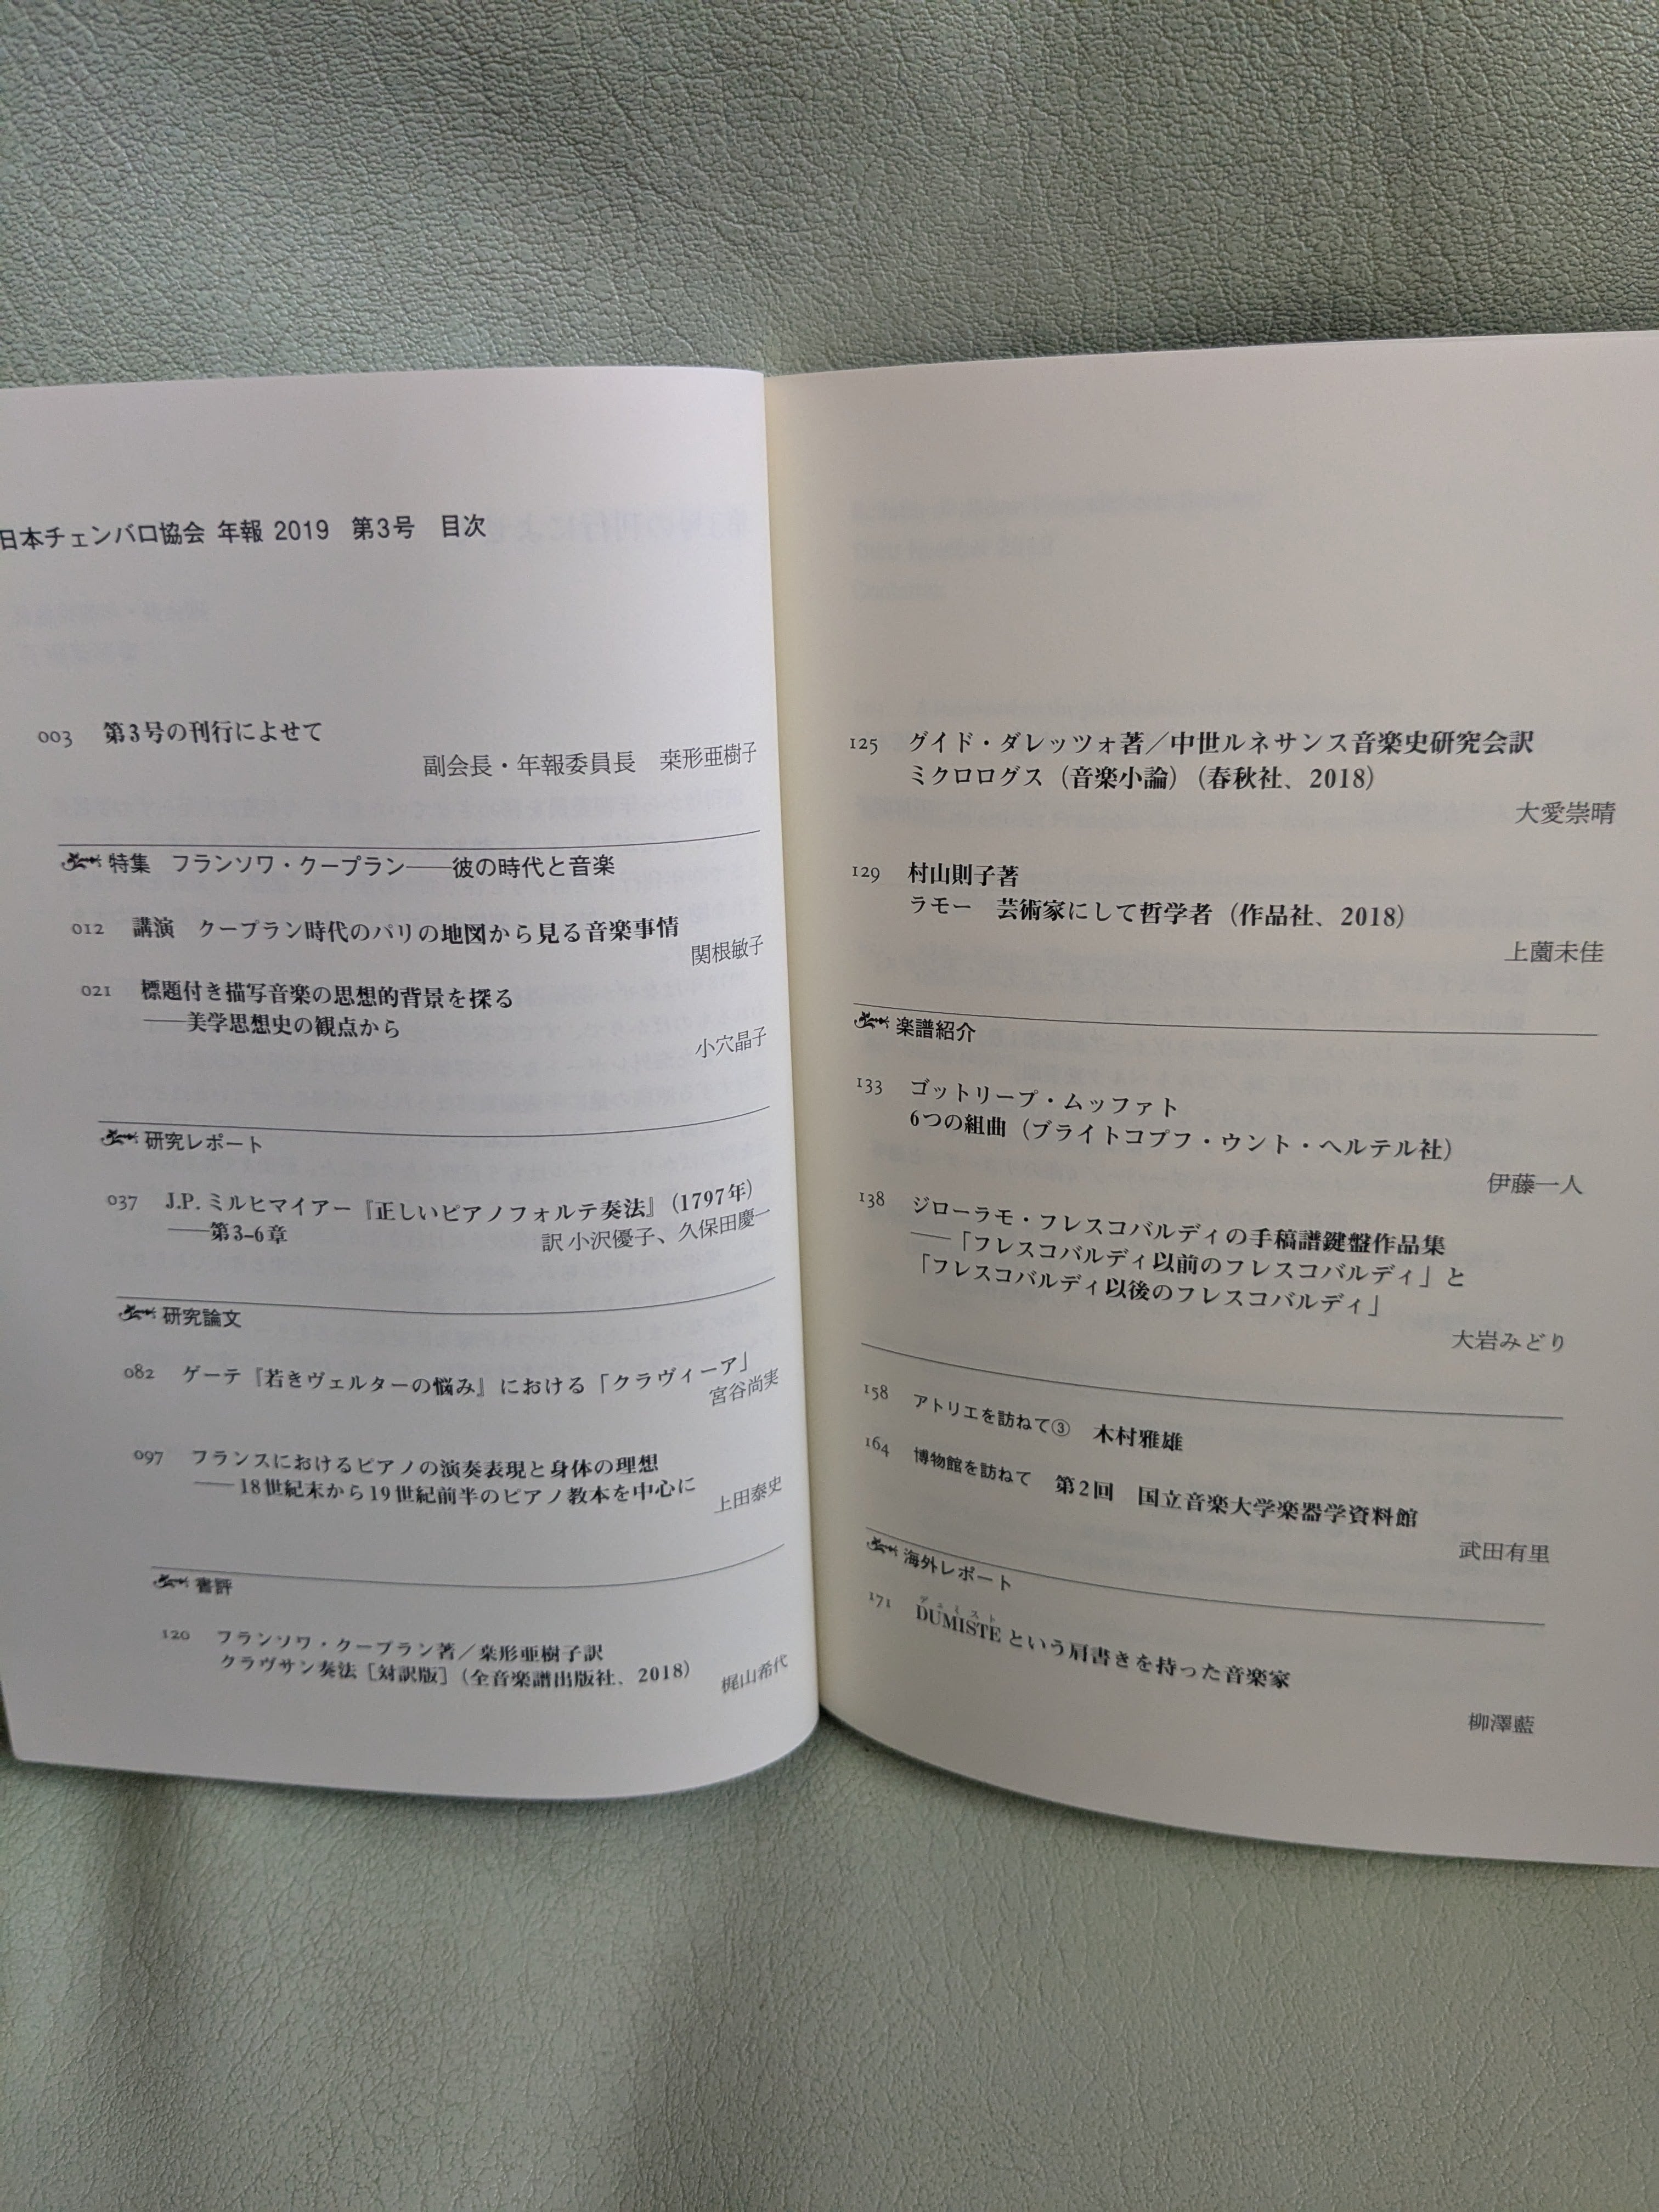 日本チェンバロ協会 年報 2019 第3号 目次
003 第3号の刊行によせて
副会長・年報委員長 桒形亜樹子
特集 フランソワ・クープラン——彼の時代と音楽
012 講演 クープラン時代のパリの地図から見る音楽事情
関根敏子
021 標題付き描写音楽の思想的背景を探る
——美学思想史の観点から
小穴晶子
研究レポート
037 J.P. ミルヒマイアー『正しいピアノフォルテ奏法』（1797年）
——第3–6章
訳 小沢優子、久保田慶一
研究論文
082 ゲーテ『若きヴェルターの悩み』における「クラヴィーア」
宮谷尚実
097 フランスにおけるピアノの演奏表現と身体の理想
——18世紀末から19世紀前半のピアノ教本を中心に
上田泰史
書評
120 フランソワ・クープラン著／桒形亜樹子訳
クラヴサン奏法［対訳版］（全音楽譜出版社、2018）
梶山希代
125 グイド・ダレッツォ著／中世ルネサンス音楽史研究会訳
ミクロログス（音楽小論）（春秋社、2018）
大愛崇晴
129 村山則子著
ラモー 芸術家にして哲学者（作品社、2018）
上薗未佳
楽譜紹介
133 ゴットリープ・ムッファト
6つの組曲（ブライトコプフ・ウント・ヘルテル社）
伊藤一人
138 ジローラモ・フレスコバルディの手稿譜鍵盤作品集
——「フレスコバルディ以前のフレスコバルディ」と
「フレスコバルディ以後のフレスコバルディ」
大岩みどり
158 アトリエを訪ねて③ 木村雅雄
164 博物館を訪ねて 第2回 国立音楽大学楽器学資料館
武田有里
海外レポート
デュミスト
171 DUMISTE という肩書きを持った音楽家
柳澤藍